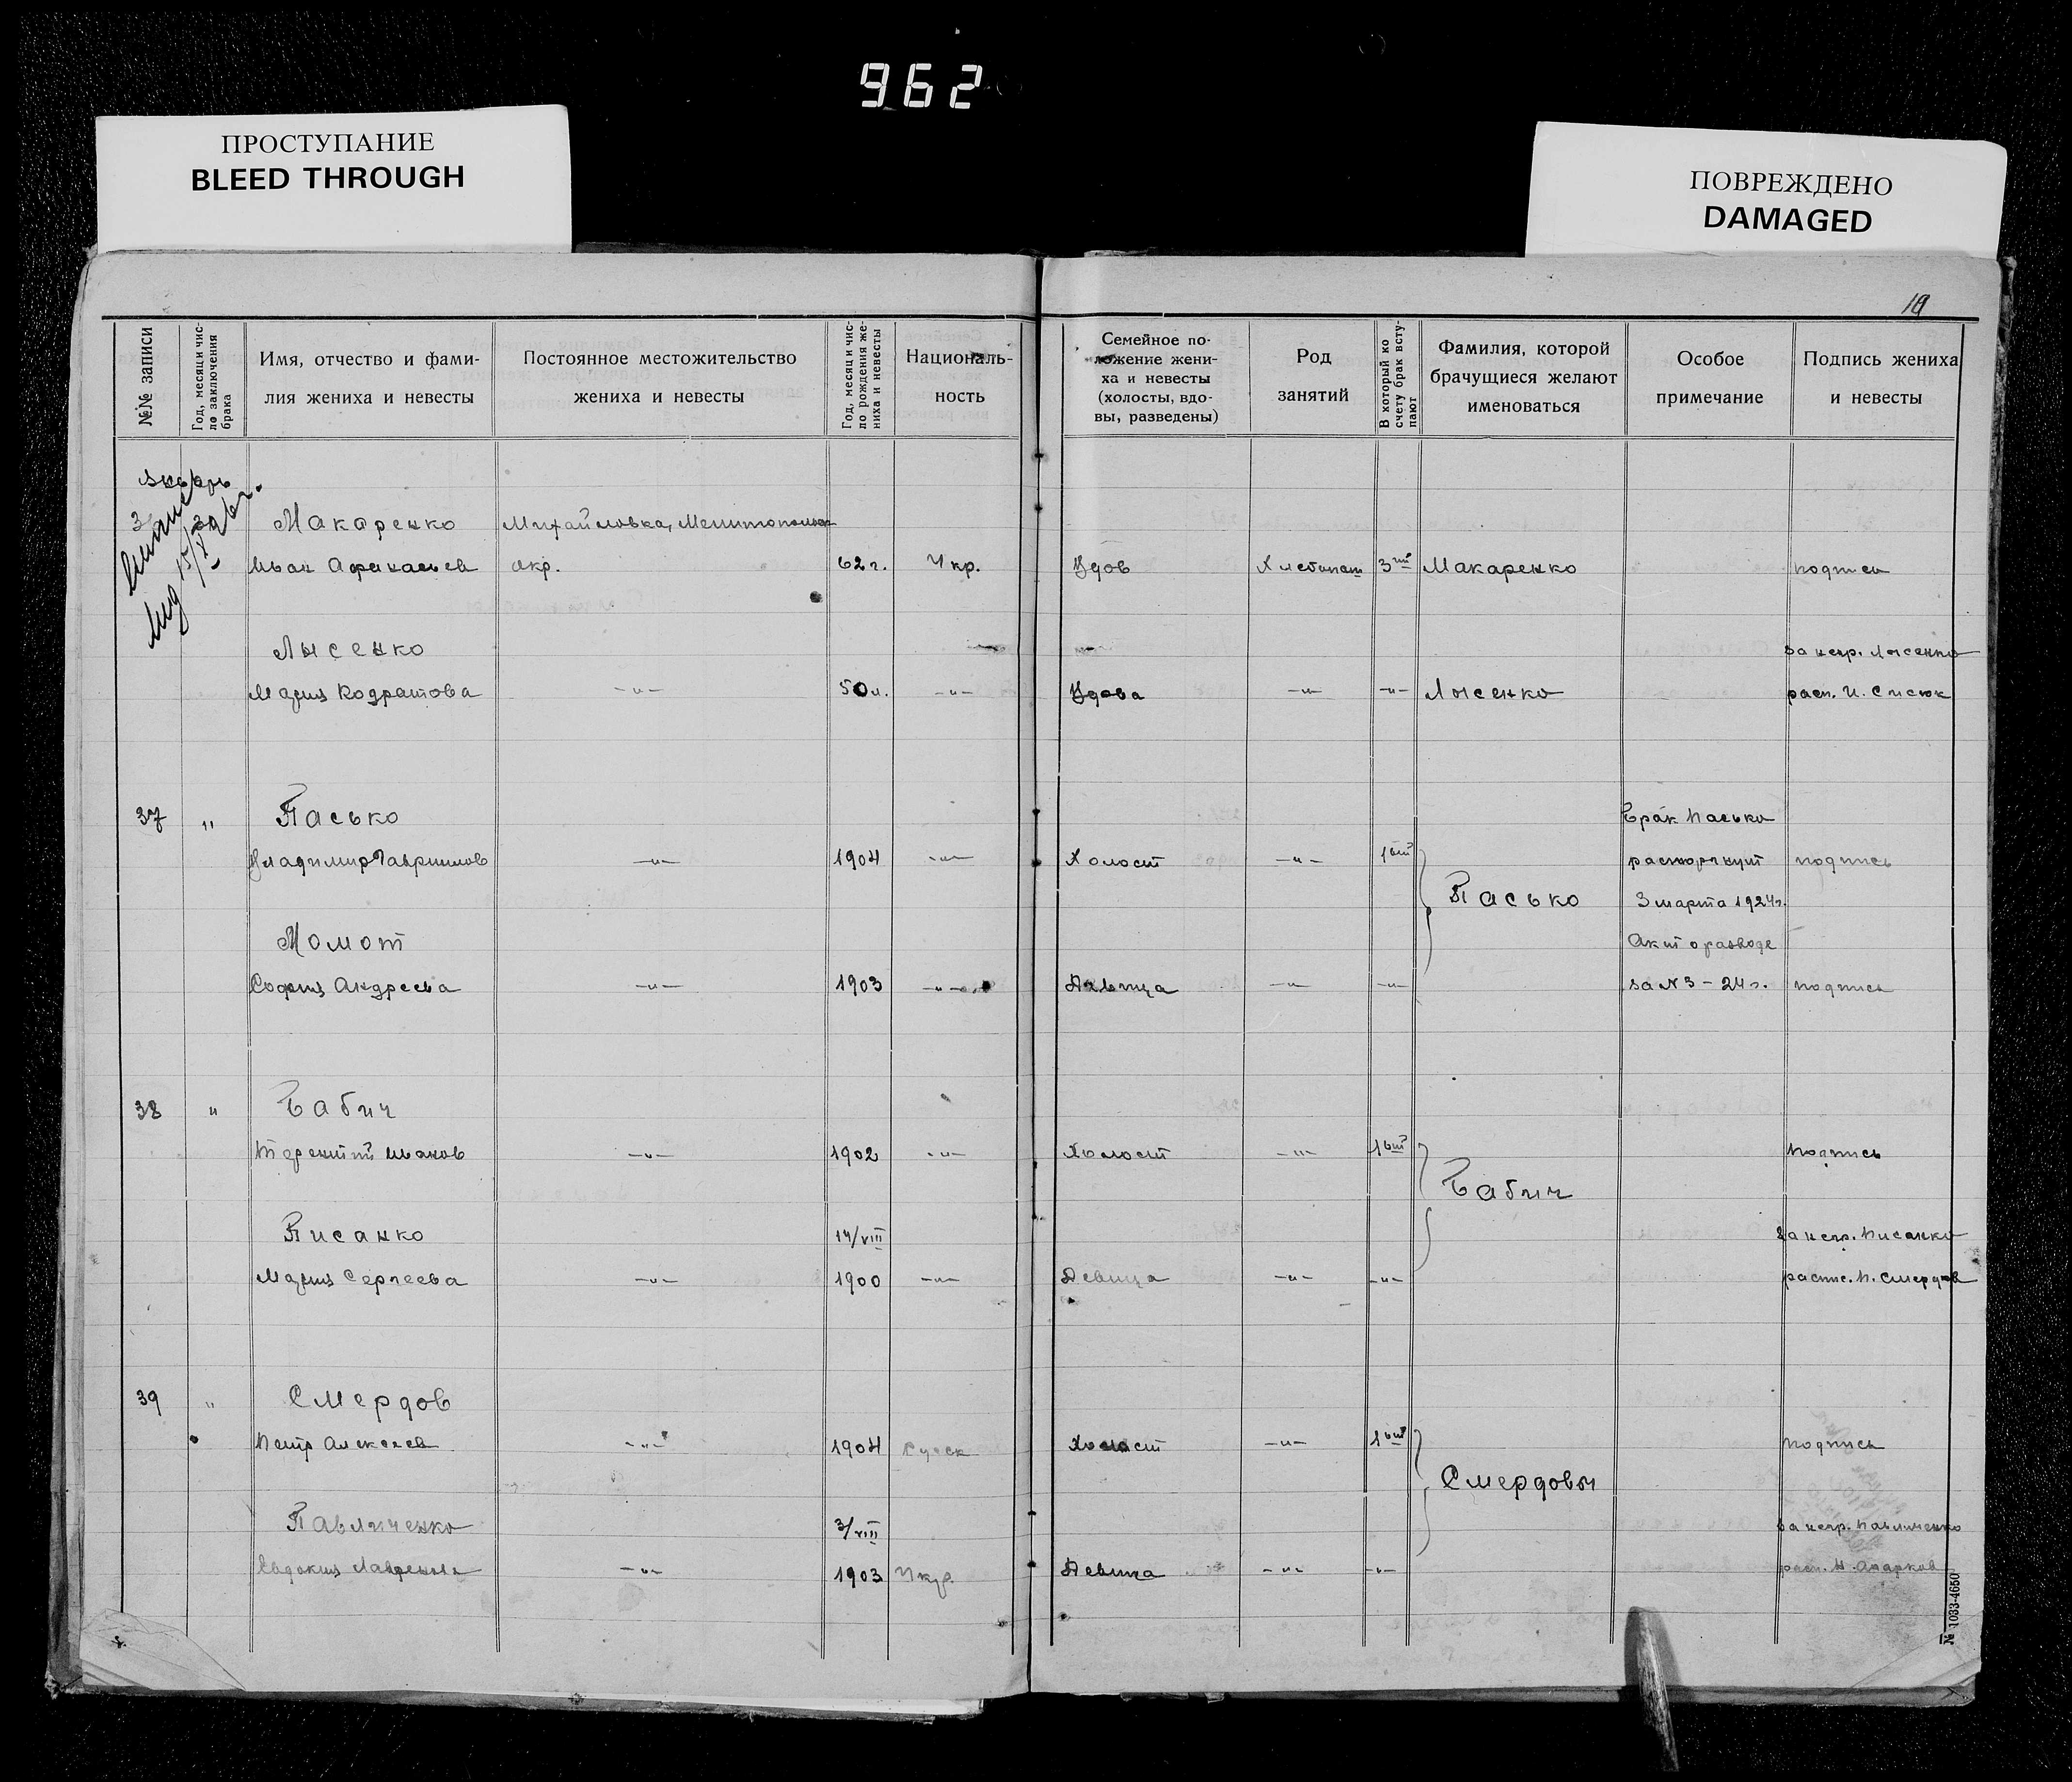 962
ПРОСТУПАНИЕ
BLEED THROUGH
ПОВРЕЖДЕНО
DAMAGED
19
№№ записи
Год, месяц и чис-
ло заключения
брака
Имя, отчество и фами-
лия жениха и невесты
Постоянное местожительство
жениха и невесты
Год, месяц и чис-
ло рождения же-
ниха и невесты
Националь-
ность
Семейное по-
ложение жени-
ха и невесты
(холосты, вдо-
вы, разведены)
Род
занятий
В который ко
счету брак всту-
пают
Фамилия, которой
брачущиеся желают
именоваться
Особое
примечание
Подпись жениха
и невесты
Январь
Макаренко Михайловка, Мелитопольск
Иван Афанасьев окр. 62 г. Укр. Вдов Хлебопаш 3ий Макаренко подпись
Лысенко за негр. Лысенко
Мария Кодратова -"- 50 л. -"- Вдова -"- -"- Лысенко расп. И. Слисюк
37 " Пасько Брак Пасько
Владимир Гаврилов -"- 1904 -"- Холост -"- 1ый расторгнут подпись
Пасько 3 марта 1924 г.
Момот Акт о разводе
София Андреева -"- 1903 -"- Девица -"- -"- за № 3 - 24 г. подпись
38 " Бабич
Терентий Иванов -"- 1902 -"- Холост -"- 1ый подпись
Бабич
Писанко 14/VIII за негр. Писанко
Мария Сергеева -"- 1900 -"- Девица -"- -"- распис. П. Смердов
39 " Смердов
Петр Алексеев -"- 1904 Русск Холост -"- 1ый подпись
Смердовы
Павличенко 3/VIII за негр. Павличенко
Евдокия -"- 1903 Укр. Девица -"- -"- расп.
№ 1033-4650